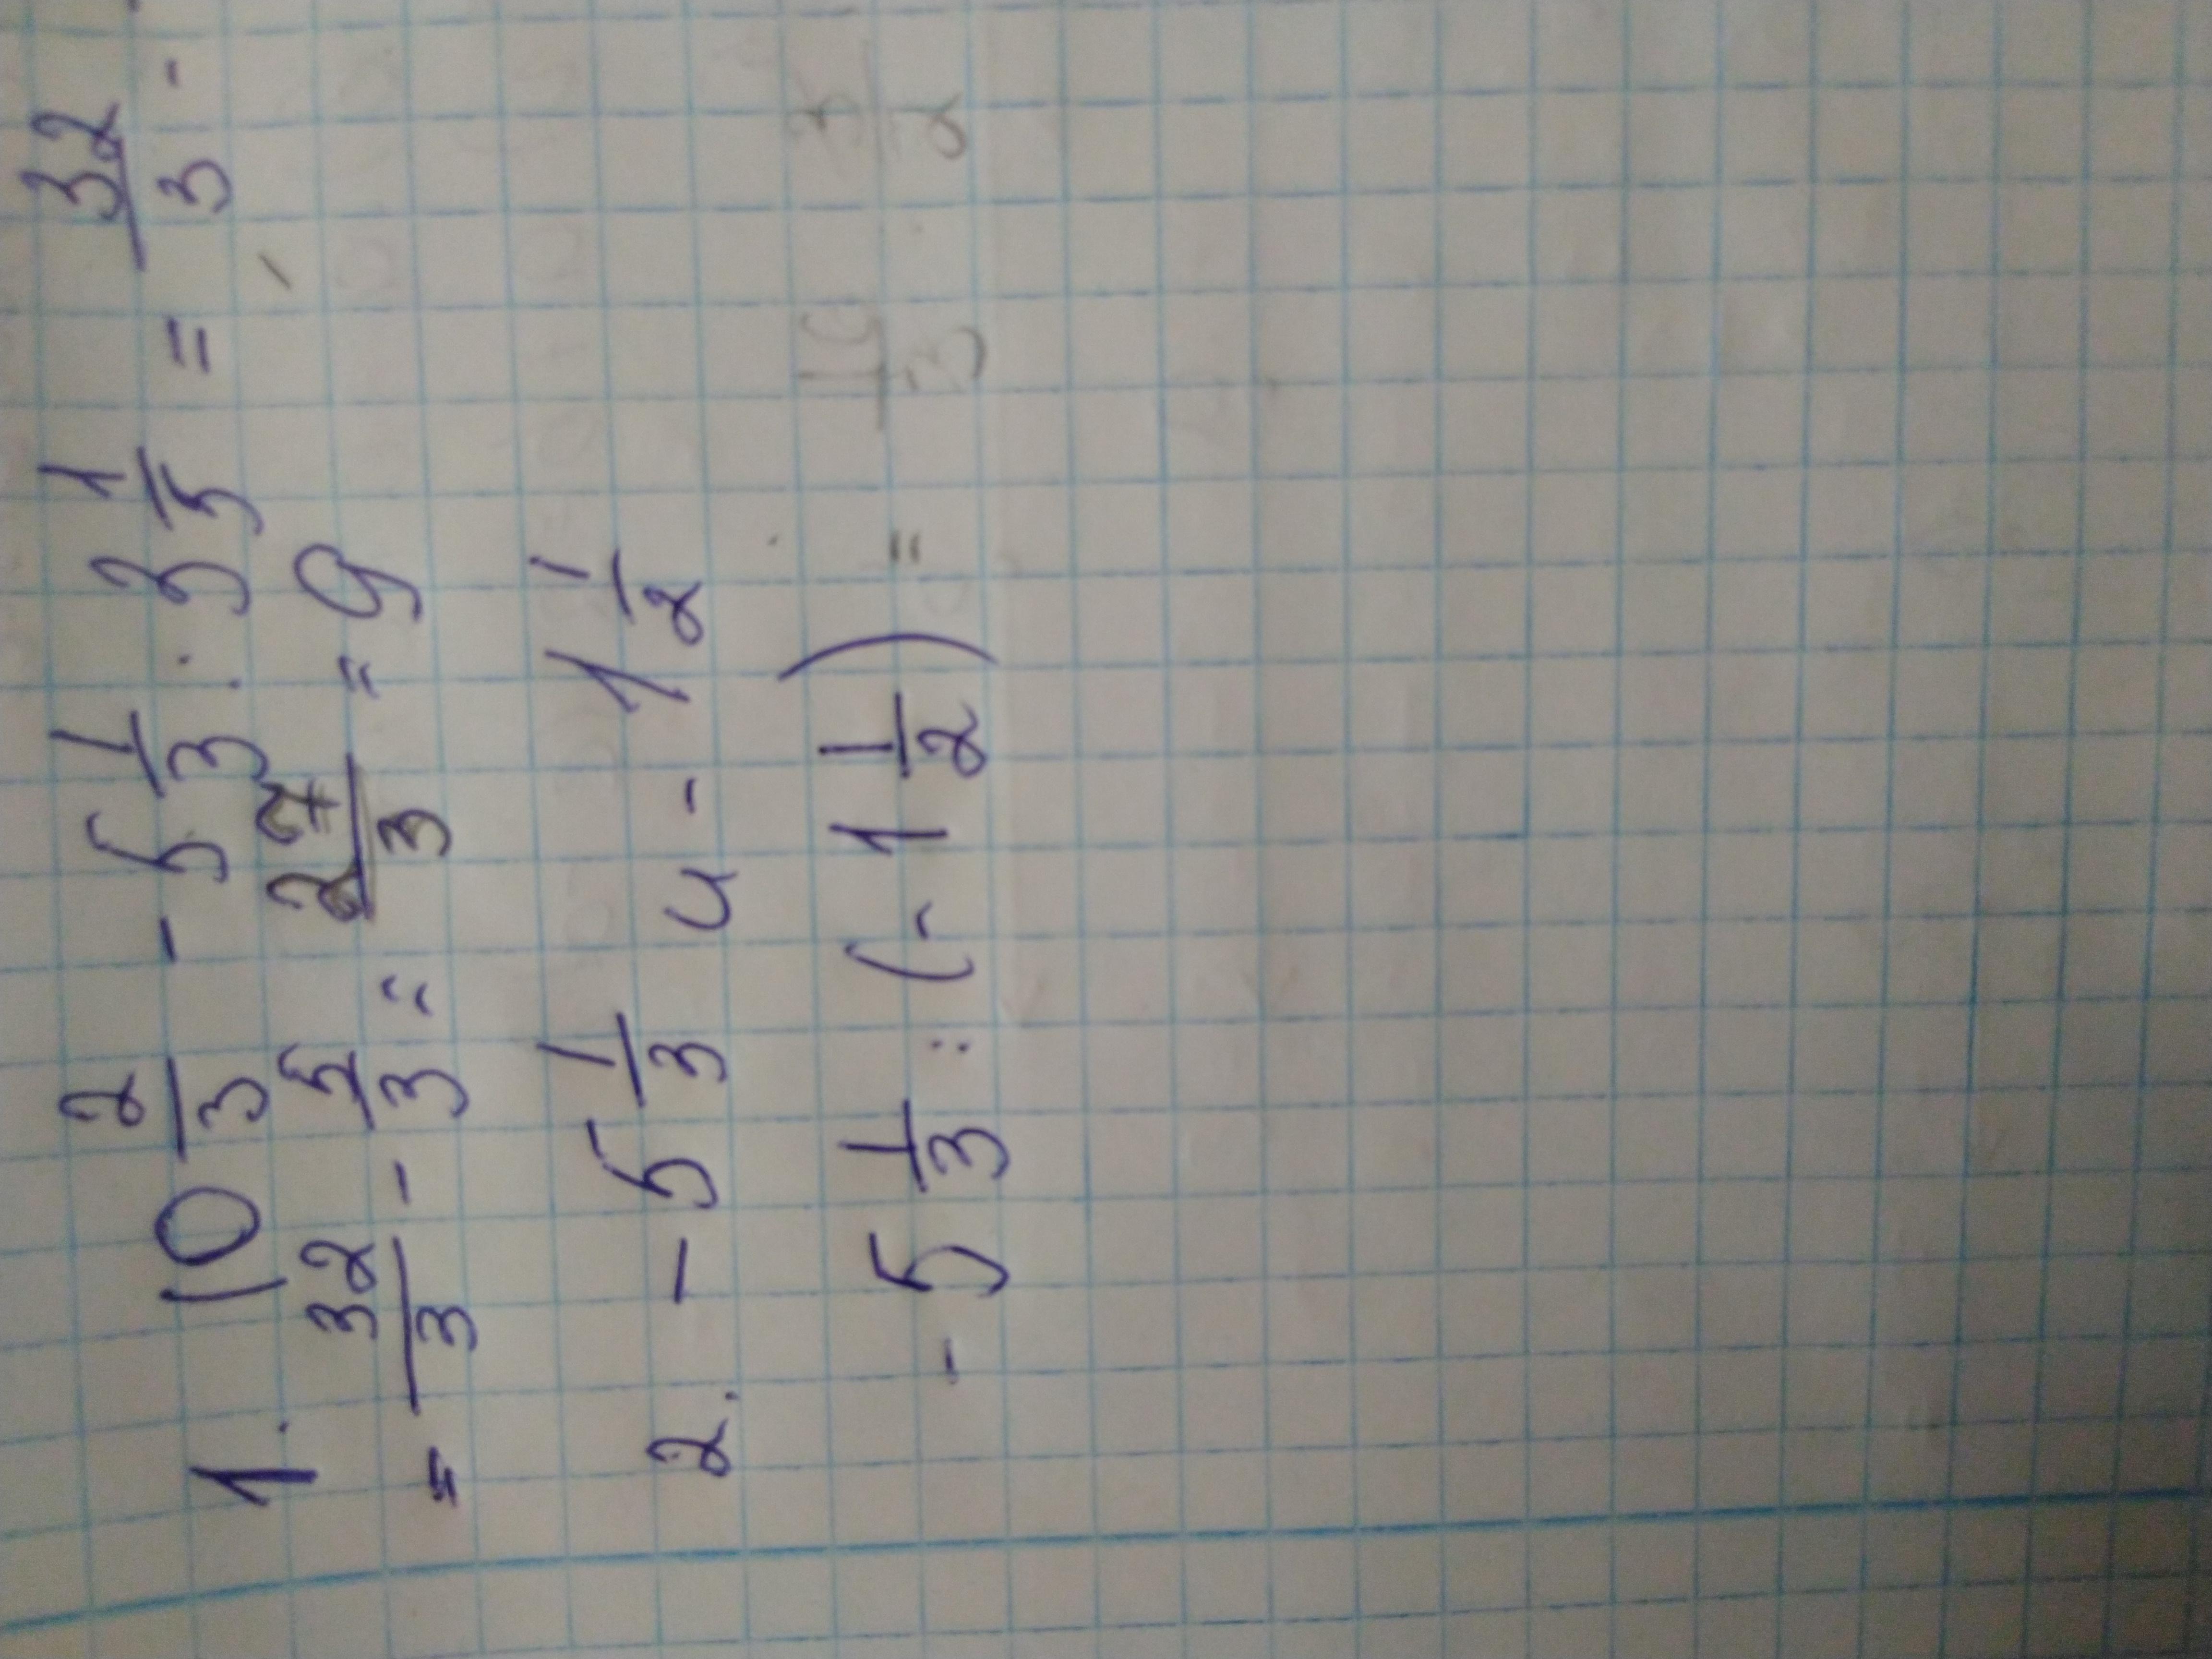 1. 10 2/3 - 5 1/3 : 3 1/5 = 32/3 -
= 32/3 - 5/3 = 27/3 = 9
2. - 5 1/3 и - 1 1/2
- 5 1/3 : (- 1 1/2) = 16/3 · 3/2